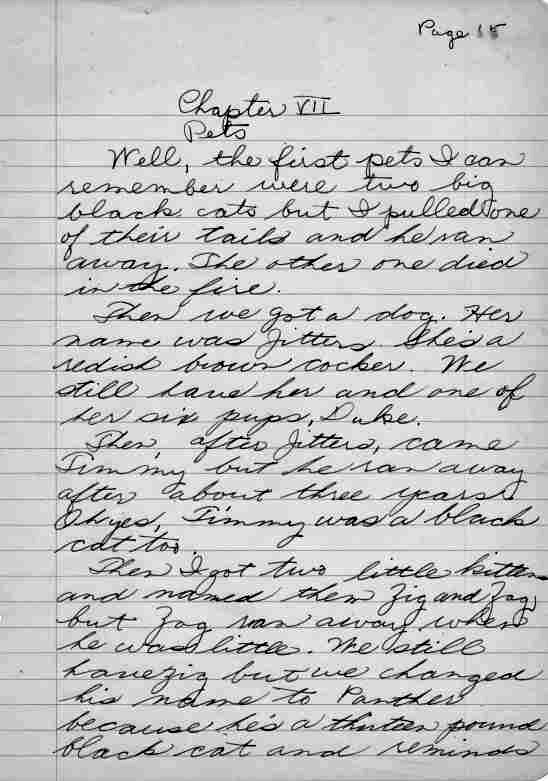 Page 15
Chapter VII
Pets
Well, the first pets I can
remember were two big
black cats but I pulled one
of their tails and he ran
away. The other one died
in the fire.
Then we got a dog. Her
name was Jitters. She's a
redish brown cocker. We
still have her and one of
her six pups, Duke.
Then, after Jitters, came
Timmy but he ran away
after about three years.
Oh yes, Timmy was a black
cat too.
Then I got two little kittens
and named them Zig and Zag,
but Zag ran away when
he was little. We still
have zig but we changed
his name to Panther
because he's a thirteen pound
black cat and reminds